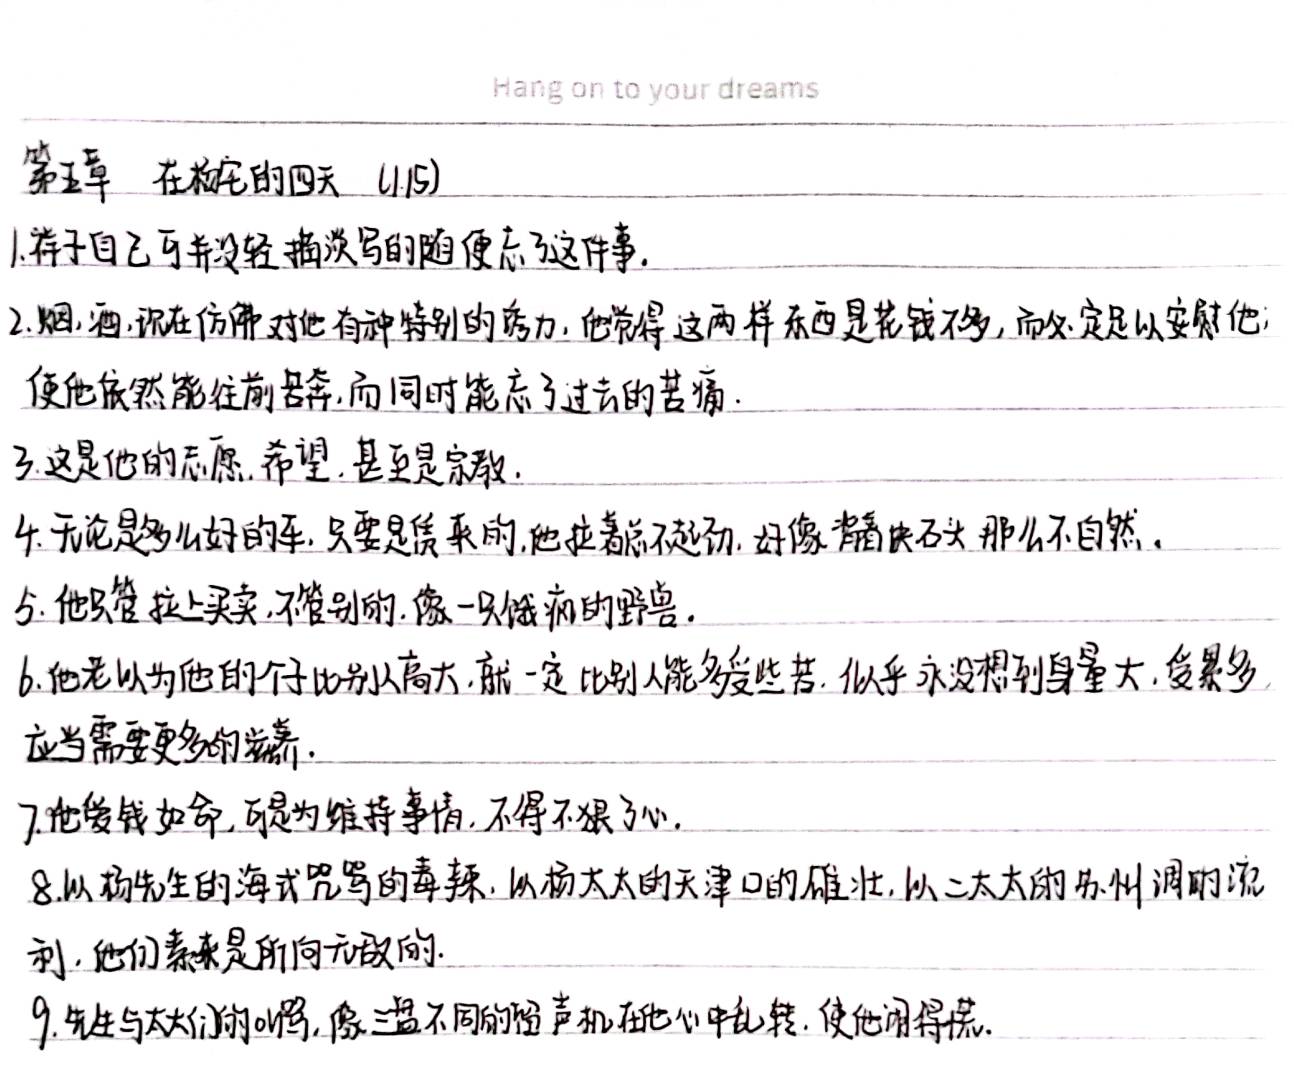 Hang on to your dreams
第五章 在杨宅的四天 (1.15)
1.祥子自己可并没轻描淡写的随便忘了这件事.
2.烟,酒,现在仿佛对他有种特别的诱力,他觉得这两样东西是花钱不多,而必定足以安慰他;
使他依然能往前苦奔,而同时能忘了过去的苦痛.
3.这是他的志愿,希望,甚至是宗教.
4.无论是多么好的车,只要是赁来的,他拉着总不起劲,好像背着块石头那么不自然.
5.他只管拉上买卖,不管别的,像一只饿疯的野兽.
6.他老以为他的个子比别人高大,就一定比别人能多受些苦,似乎永没想到身量大,受累多,
应当需要更多的滋养.
7.他爱钱如命,可是为维持事情,不得不狠了心.
8.以杨先生的海式咒骂的毒辣,以杨太太的天津口的雄壮,以二太太的苏州调的流
利,他们素来是所向无敌的.
9.先生与太太们的叫骂,像三盘不同的留声机在他心中乱转,使他闹得慌.